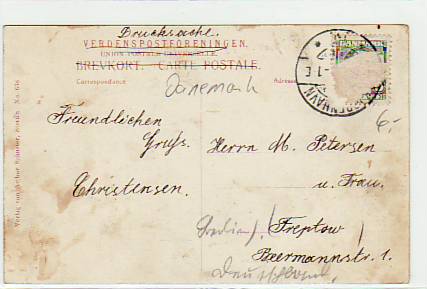 Drucksache.
VERDENSPOSTFORENINGEN.
UNION POSTALE UNIVERSELLE.
BREVKORT. — CARTE POSTALE.
Correspondance
Adresse
Dänemark
KJØBENHAVN
6,-
Freundlichen
Gruß.
Christensen.
Herrn M. Petersen
u. Frau.
(Berlin)
Treptow
Beermannstr. 1.
Deutschland.
Verlag von
No. 616